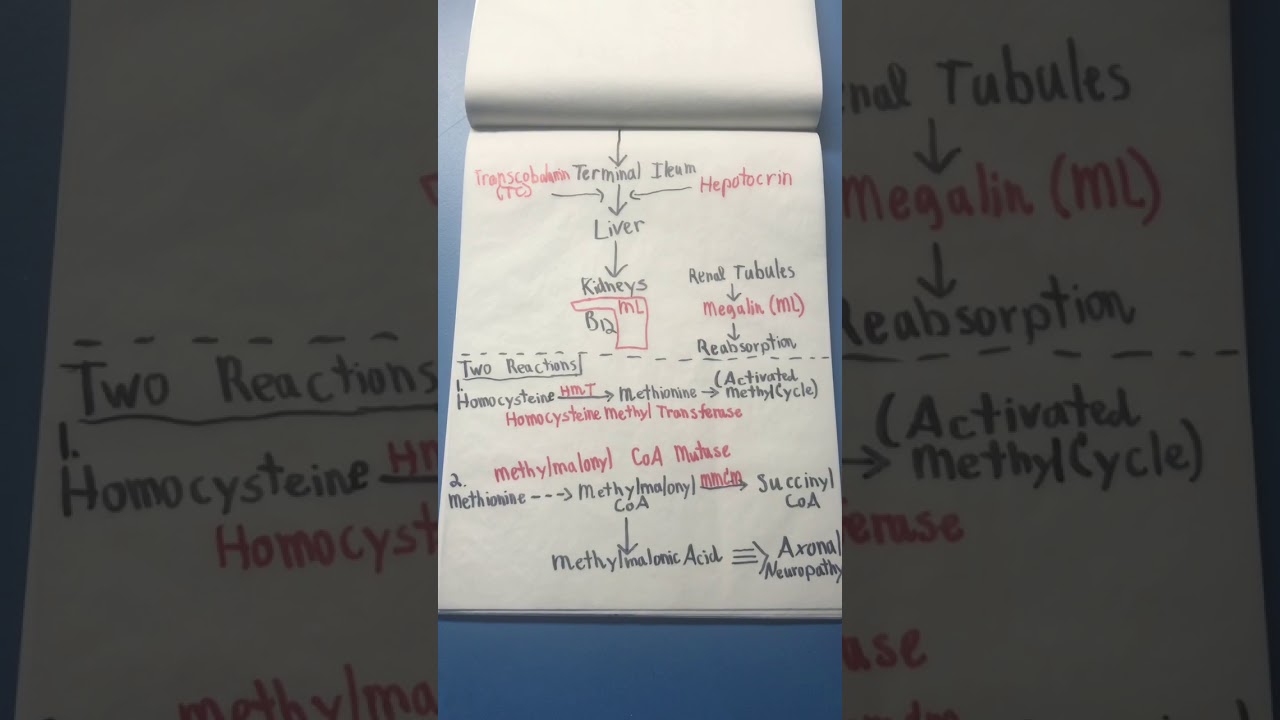 Transcobalamin Terminal Ileum
(TC)
Hepotocrin
Liver
Kidneys
mL
B12
Renal Tubules
Megalin (mL)
Reabsorption
Two Reactions
1.
Homocysteine HMT Methionine (Activated
methyl Cycle)
Homocysteine Methyl Transferase
methylmalonyl CoA Mutase
2.
Methionine Methylmalonyl mmcm Succinyl
CoA CoA
Methylmalonic Acid Axonal
Neuropathy